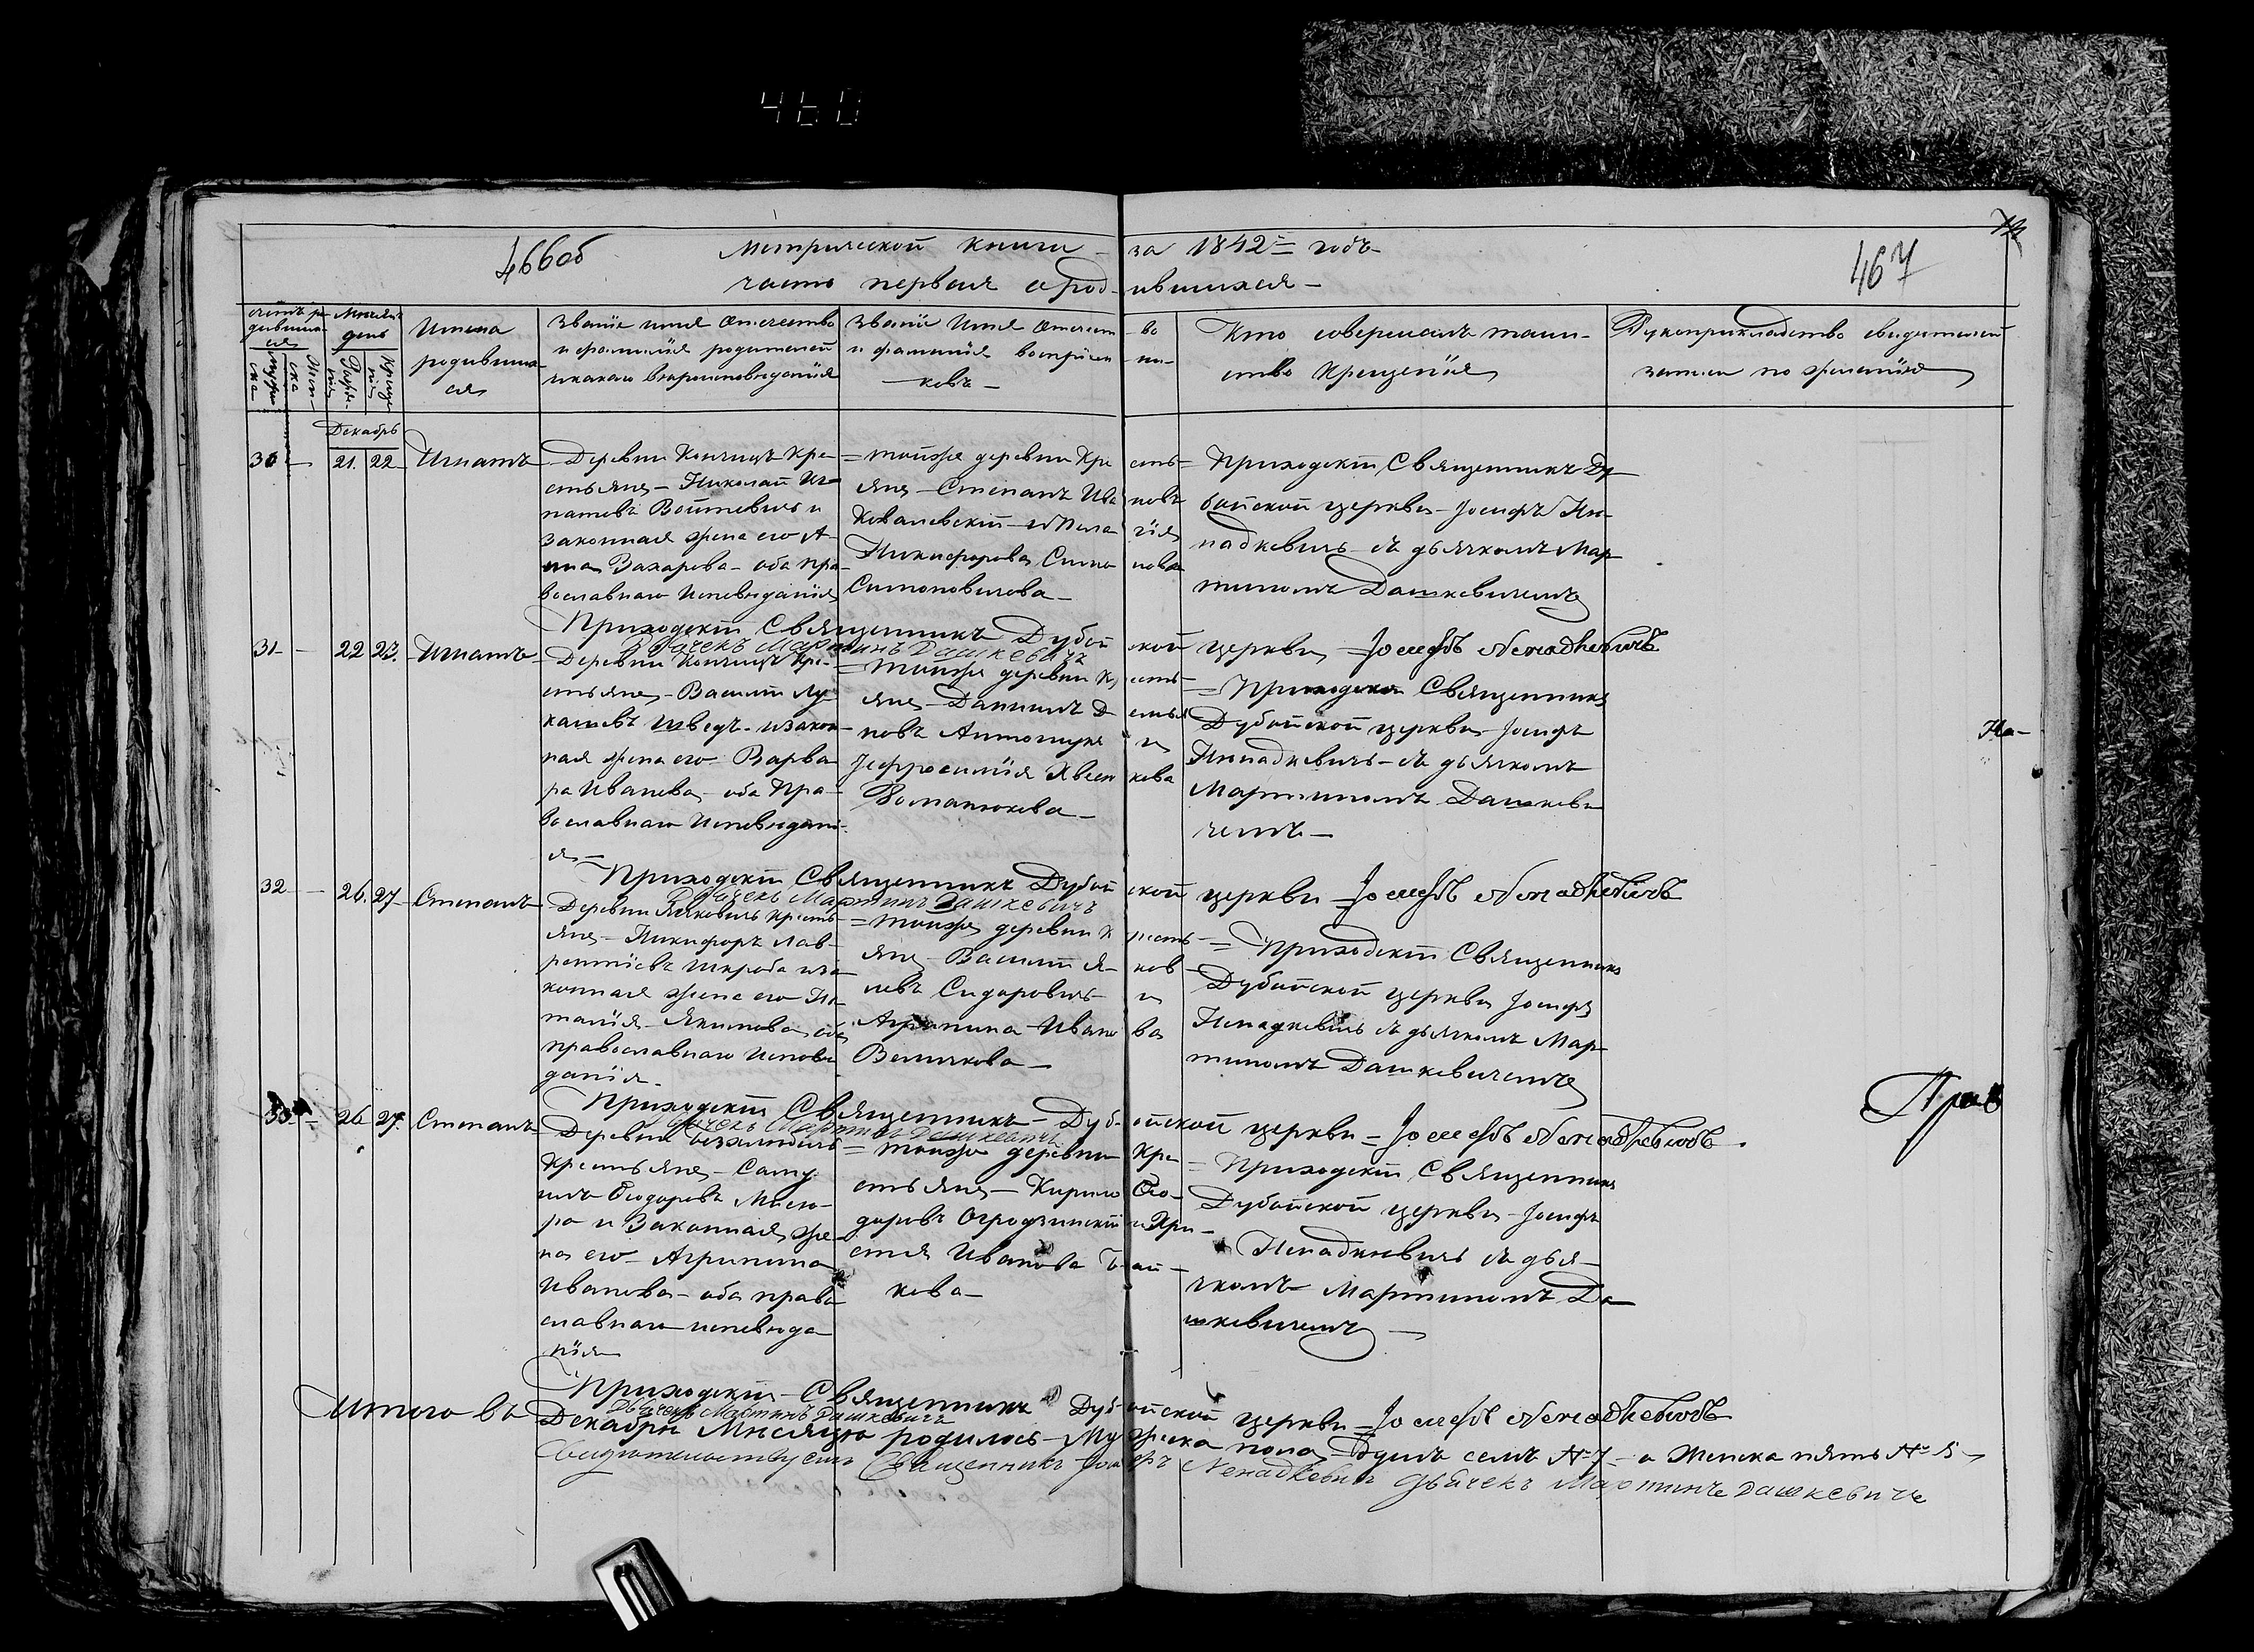 460
466об
Метрической книги за 1842 = годъ
467
часть первая о родившихся
счетъ родившихся
Мужеска
Женска
Месяцъ день
Рожденія
Крещенія
Имена родившихся
Званіе имя отечество
и фамилія родителей
и какаго вѣроисповѣданія
Званіе Имя отечество
и фамилія воспріемни-
ковъ
Кто совершалъ таин-
ство крещенія
Рукоприкладство свидѣтелей
записи по желанію
Декабрь
30 - 21. 22 Игнатъ
Деревни Кончицъ кре-
стьяне - Николай Иг-
натовъ Войтевичъ и
законная жена его А-
нна Захарова - оба пра-
вославнаго исповѣданія
= тойже деревни Крестъ-
яне - Степанъ Ивановъ
Ковалевскій - и Пелагія
Никифорова Симонова
Симоновичова -
Приходскій Священникъ Ду-
бойской церкви - Іосифъ Не-
надкевичъ съ дьячкомъ Мар-
тиномъ Дашкевичемъ
Приходскій Священникъ Дубойской церкви = Іосифъ Ненадкевичъ
Дьячекъ Мартинъ Дашкевичъ
31 - 22 23. Игнатъ
Деревни Кончицъ кре-
стьяне - Василій Лу-
кашевъ Шведъ - и закон-
ная жена его Варва-
ра Иванова - оба Пра-
вославнаго исповѣдані-
я -
= тойже деревни
яне - Даніилъ
новъ Антонюкъ и
Ефросинія
Романюкова -
= Приходскій Священникъ
Дубойской церкви Іосифъ
Ненадкевичъ - съ дьячкомъ
Мартиномъ Дашкеви-
чемъ -
На-
Приходскій Священникъ Дубойской церкви = Іосифъ Ненадкевичъ
Дьячекъ Мартинъ Дашкевичъ
32 - 26. 27 Степанъ
Деревни кресть-
яне - Никифоръ Лав-
рентіевъ Шкроба и за-
конная жена его На-
талія Якимова оба
православнаго исповѣ-
данія -
= тойже деревни Кресть-
яне Василій
левъ Сидоровичъ и
Агрипина Иванова
Величкова -
= Приходскій Священникъ
Дубойской церкви Іосифъ
Ненадкевичъ съ дьячкомъ Мар-
тиномъ Дашкевичемъ
Приходскій Священникъ - Дубойской церкви = Іосифъ Ненадкевичъ
Дьячекъ Мартинъ Дашкевичъ
33 - 26 27. Степанъ
Деревни
Крестьяне - Саму-
илъ Ѳеодоровъ
ра и Законная же-
на его - Агрипина
Иванова - оба право-
славнаго исповѣда-
нія
= тойже деревни Кре-
стьяне - Кирило Ѳео-
доровъ Огродзинскій и Хри-
стя Иванова
кова -
= Приходскій Священникъ
Дубойской церкви - Іосифъ
Ненадкевичъ съ дья-
чкомъ Мартиномъ Да-
шкевичемъ -
Приходскій - Священникъ Дубойской церкви = Іосифъ Ненадкевичъ
Дьячекъ Мартинъ Дашкевичъ
Итого въ Декабрѣ Мѣсяцѣ родилось - Мужеска пола душъ семъ № 7 - а Женска пять № 5 -
Свидѣтельствуемъ Священникъ Іосифъ Ненадкевичъ Дьячекъ Мартинъ Дашкевичъ